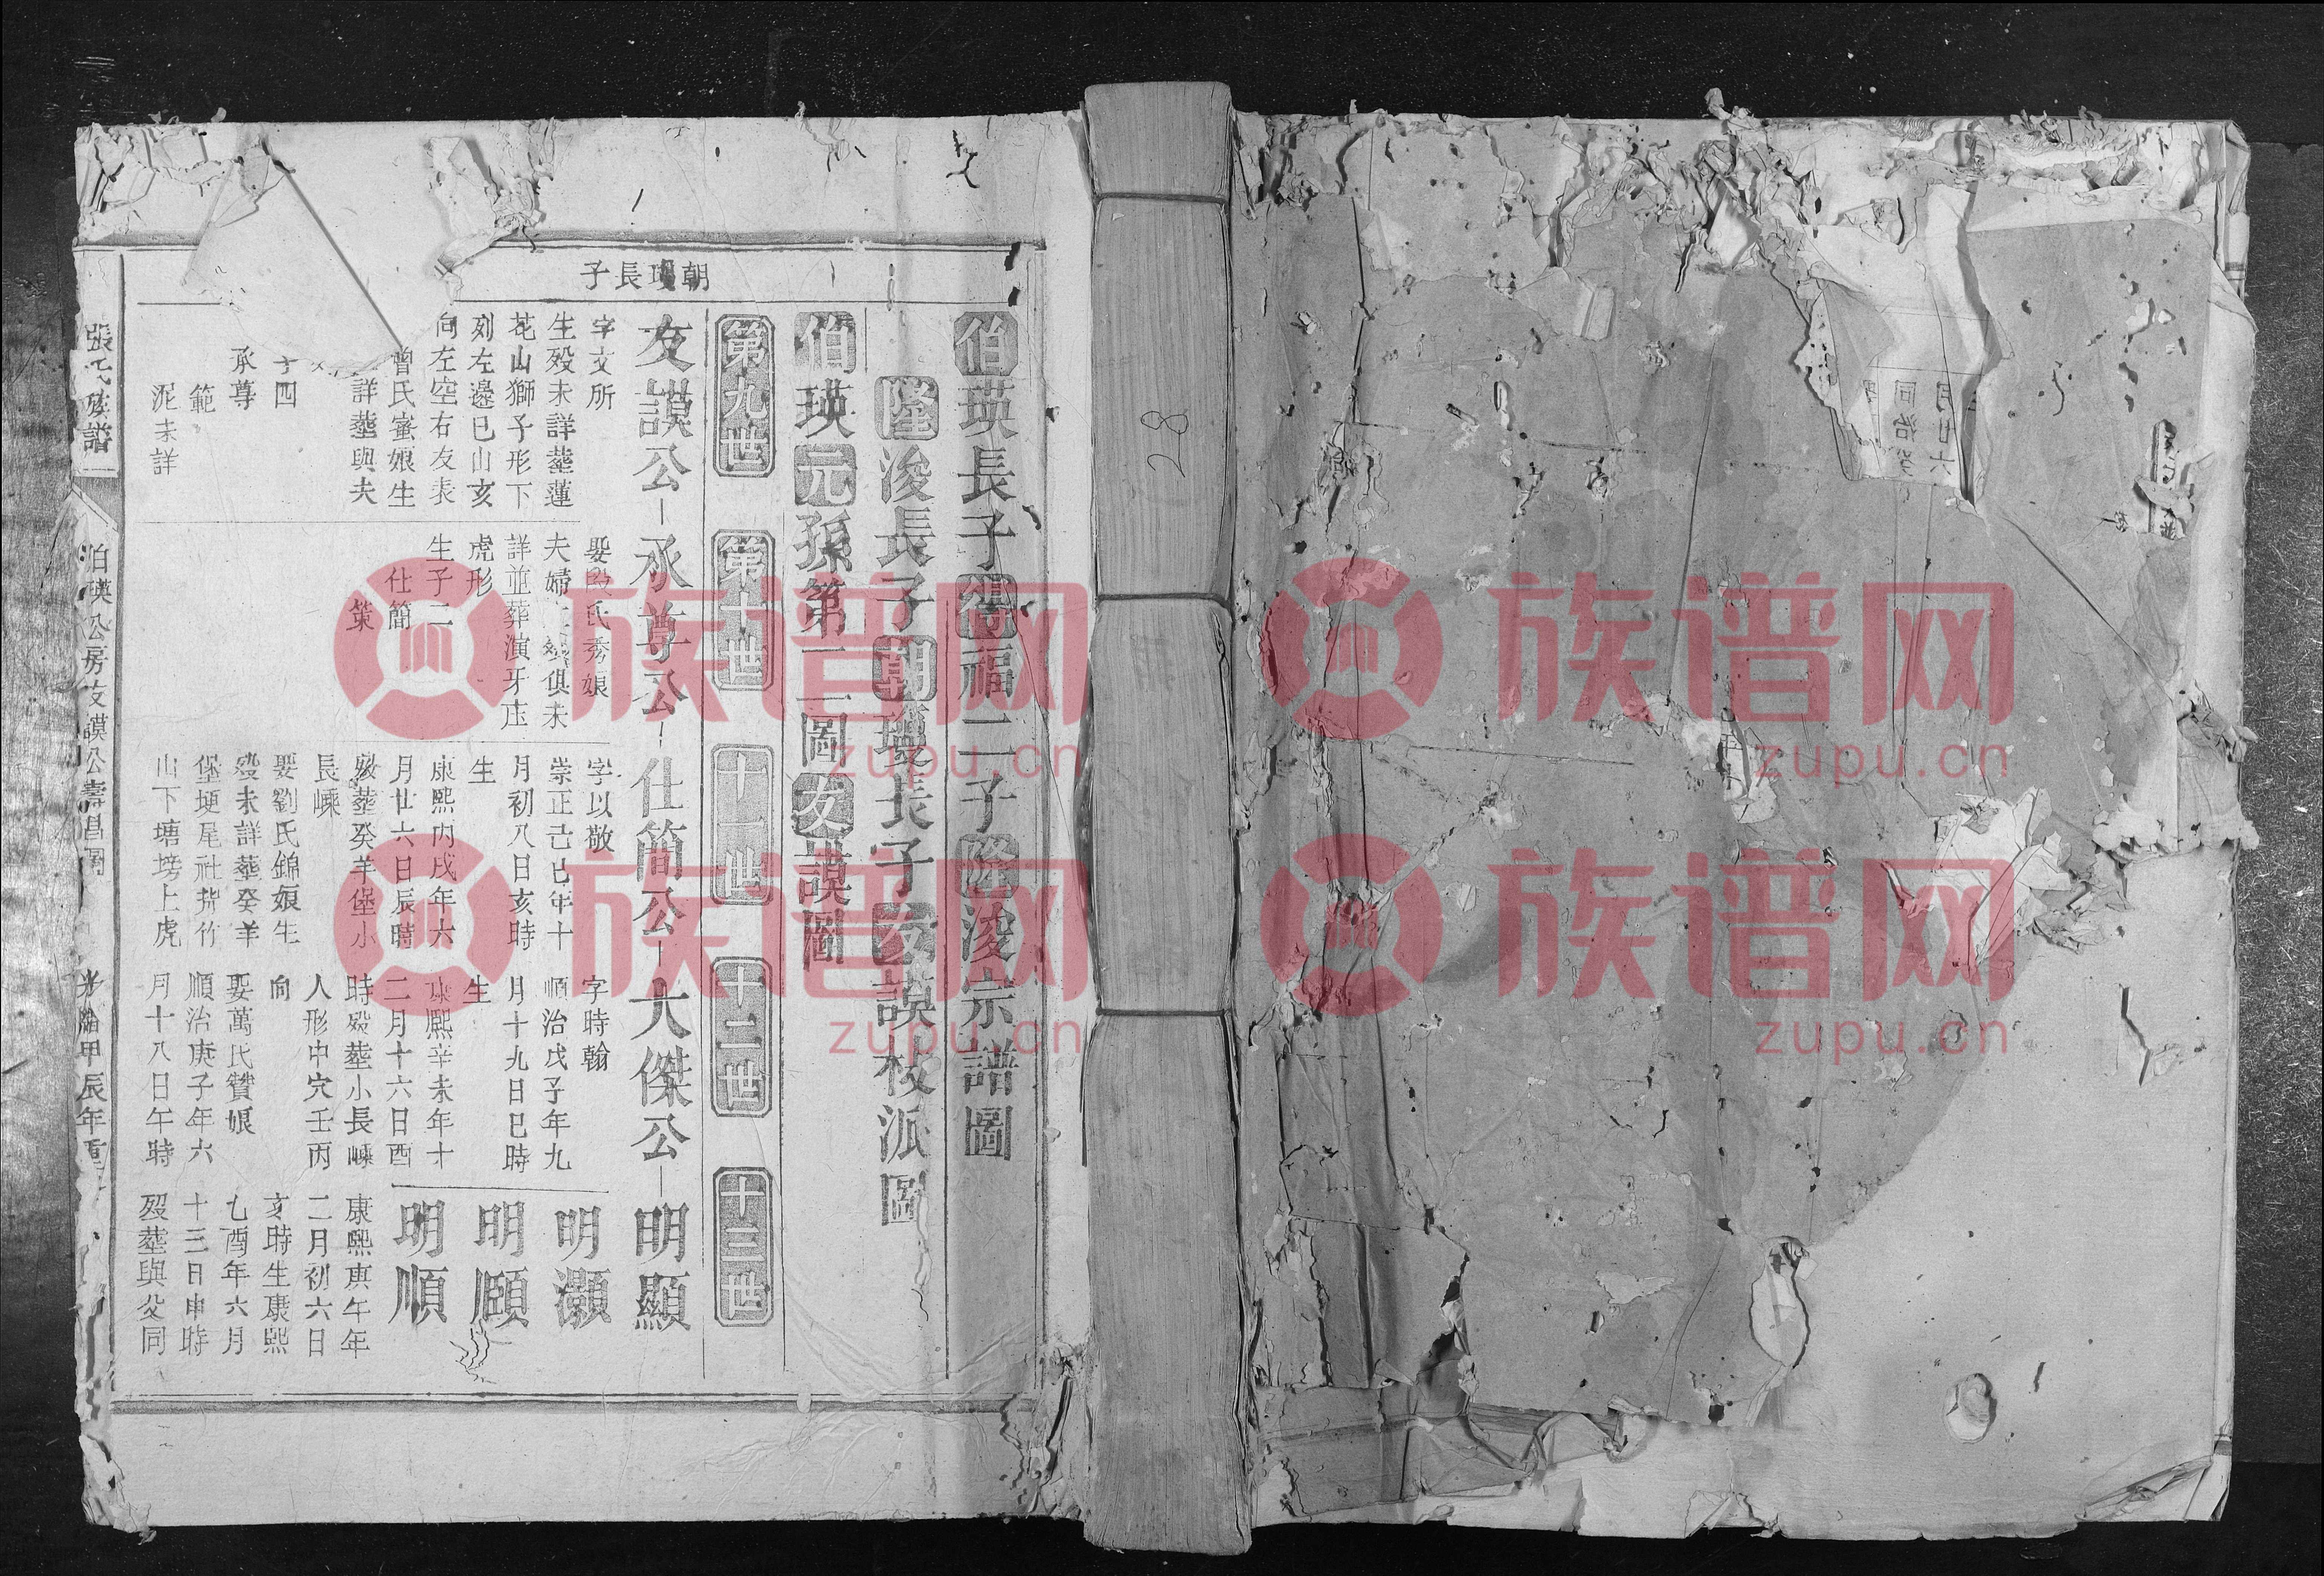 朝瓊長子
伯瑛長子得福二子隆浚宗譜圖
隆浚長子朝瓊長子友謨枝派圖
伯瑛元孫第一二圖友謨圖
第九世
第十世
十一世
十二世
十三世
友謨公 承尊公 仕簡公 大傑公 明顯
字文所
生歿未詳塟蓮
花山獅子形下
列左邊巳山亥
向左空右友表
曾氏蜜娘生
詳塟與夫
子四
承尊
範
泥未詳
娶 氏秀娘
夫婦 歿俱未
詳並葬演牙庄
虎形
生子二
仕簡
策
字以敬
崇正己巳年十
月初八日亥時
生
康熙丙戌年六
月廿六日辰時
歿塟癸羊堡小
長嵊
娶劉氏錦娘生
歿未詳塟癸羊
堡埂尾社背竹
山下塘塝上虎
字時翰
順治戊子年九
月十九日巳時
生
康熙辛未年十
二月十六日酉
時歿塟小長嵊
人形中穴壬丙
向
娶萬氏贊娘
順治庚子年六
月十八日午時
明灝
明頤
明順
康熙庚午年
二月初六日
亥時生康熙
乙酉年六月
十三日申時
歿塟與父同
張氏族譜
伯瑛公房友謨公壽昌圖
光緒甲辰年重
28
月廿六
同治癸
族谱网
zupu.cn
族谱网
zupu.cn
族谱网
zupu.cn
族谱网
zupu.cn